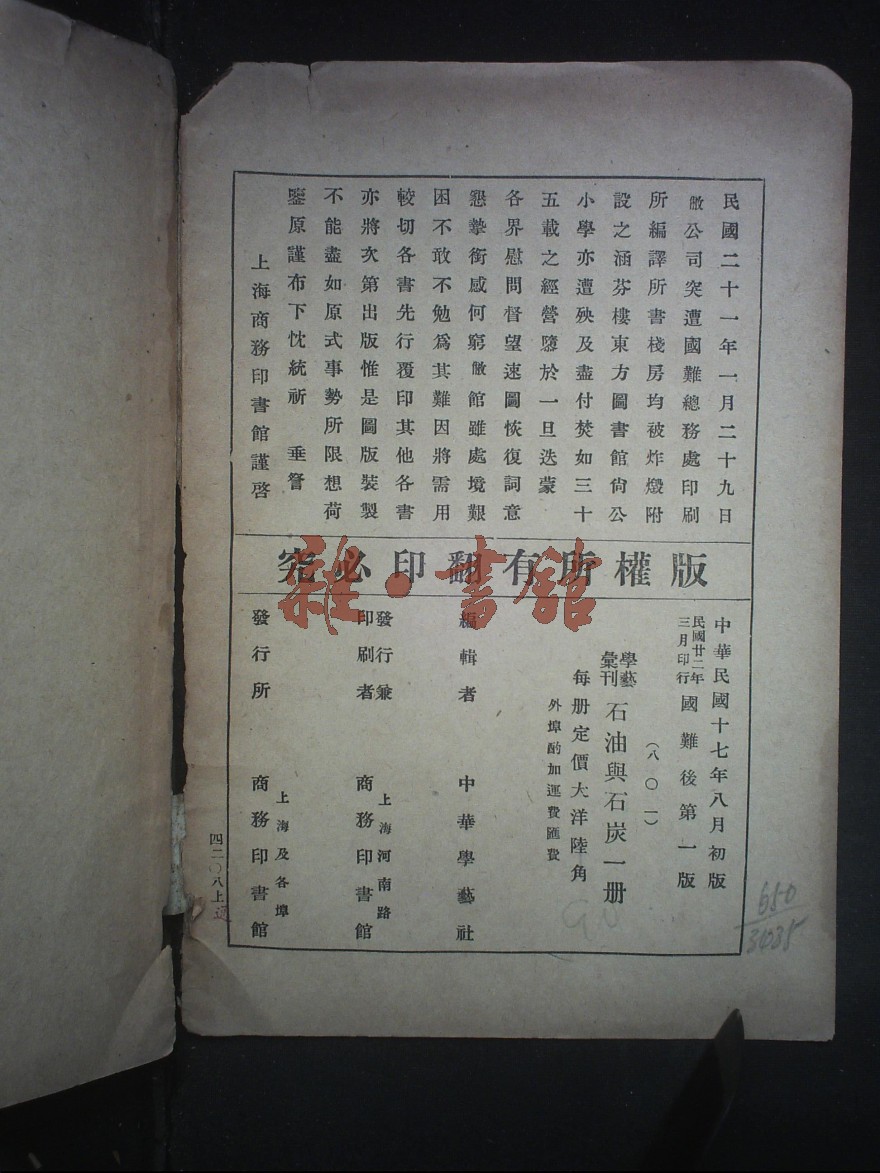 民國二十一年一月二十九日
敝公司突遭國難總務處印刷
所編譯所書棧房均被炸燬附
設之涵芬樓東方圖書館尙公
小學亦遭殃及盡付焚如三十
五載之經營隳於一旦迭蒙
各界慰問督望速圖恢復詞意
懇摯銜感何窮敝館雖處境艱
困不敢不勉爲其難因將需用
較切各書先行覆印其他各書
亦將次第出版惟是圖版裝製
不能盡如原式事勢所限想荷
鑒原謹布下忱統祈 垂詧
上海商務印書館謹啓
版權所有翻印必究
中華民國十七年八月初版
民國廿二年三月印行 國難後第一版
(八〇一)
學藝彙刊 石油與石炭一册
每册定價大洋陸角
外埠酌加運費匯費
編輯者 中華學藝社
發行兼印刷者 上海河南路 商務印書館
發行所 上海及各埠 商務印書館
四二〇八上
雜·書館
650